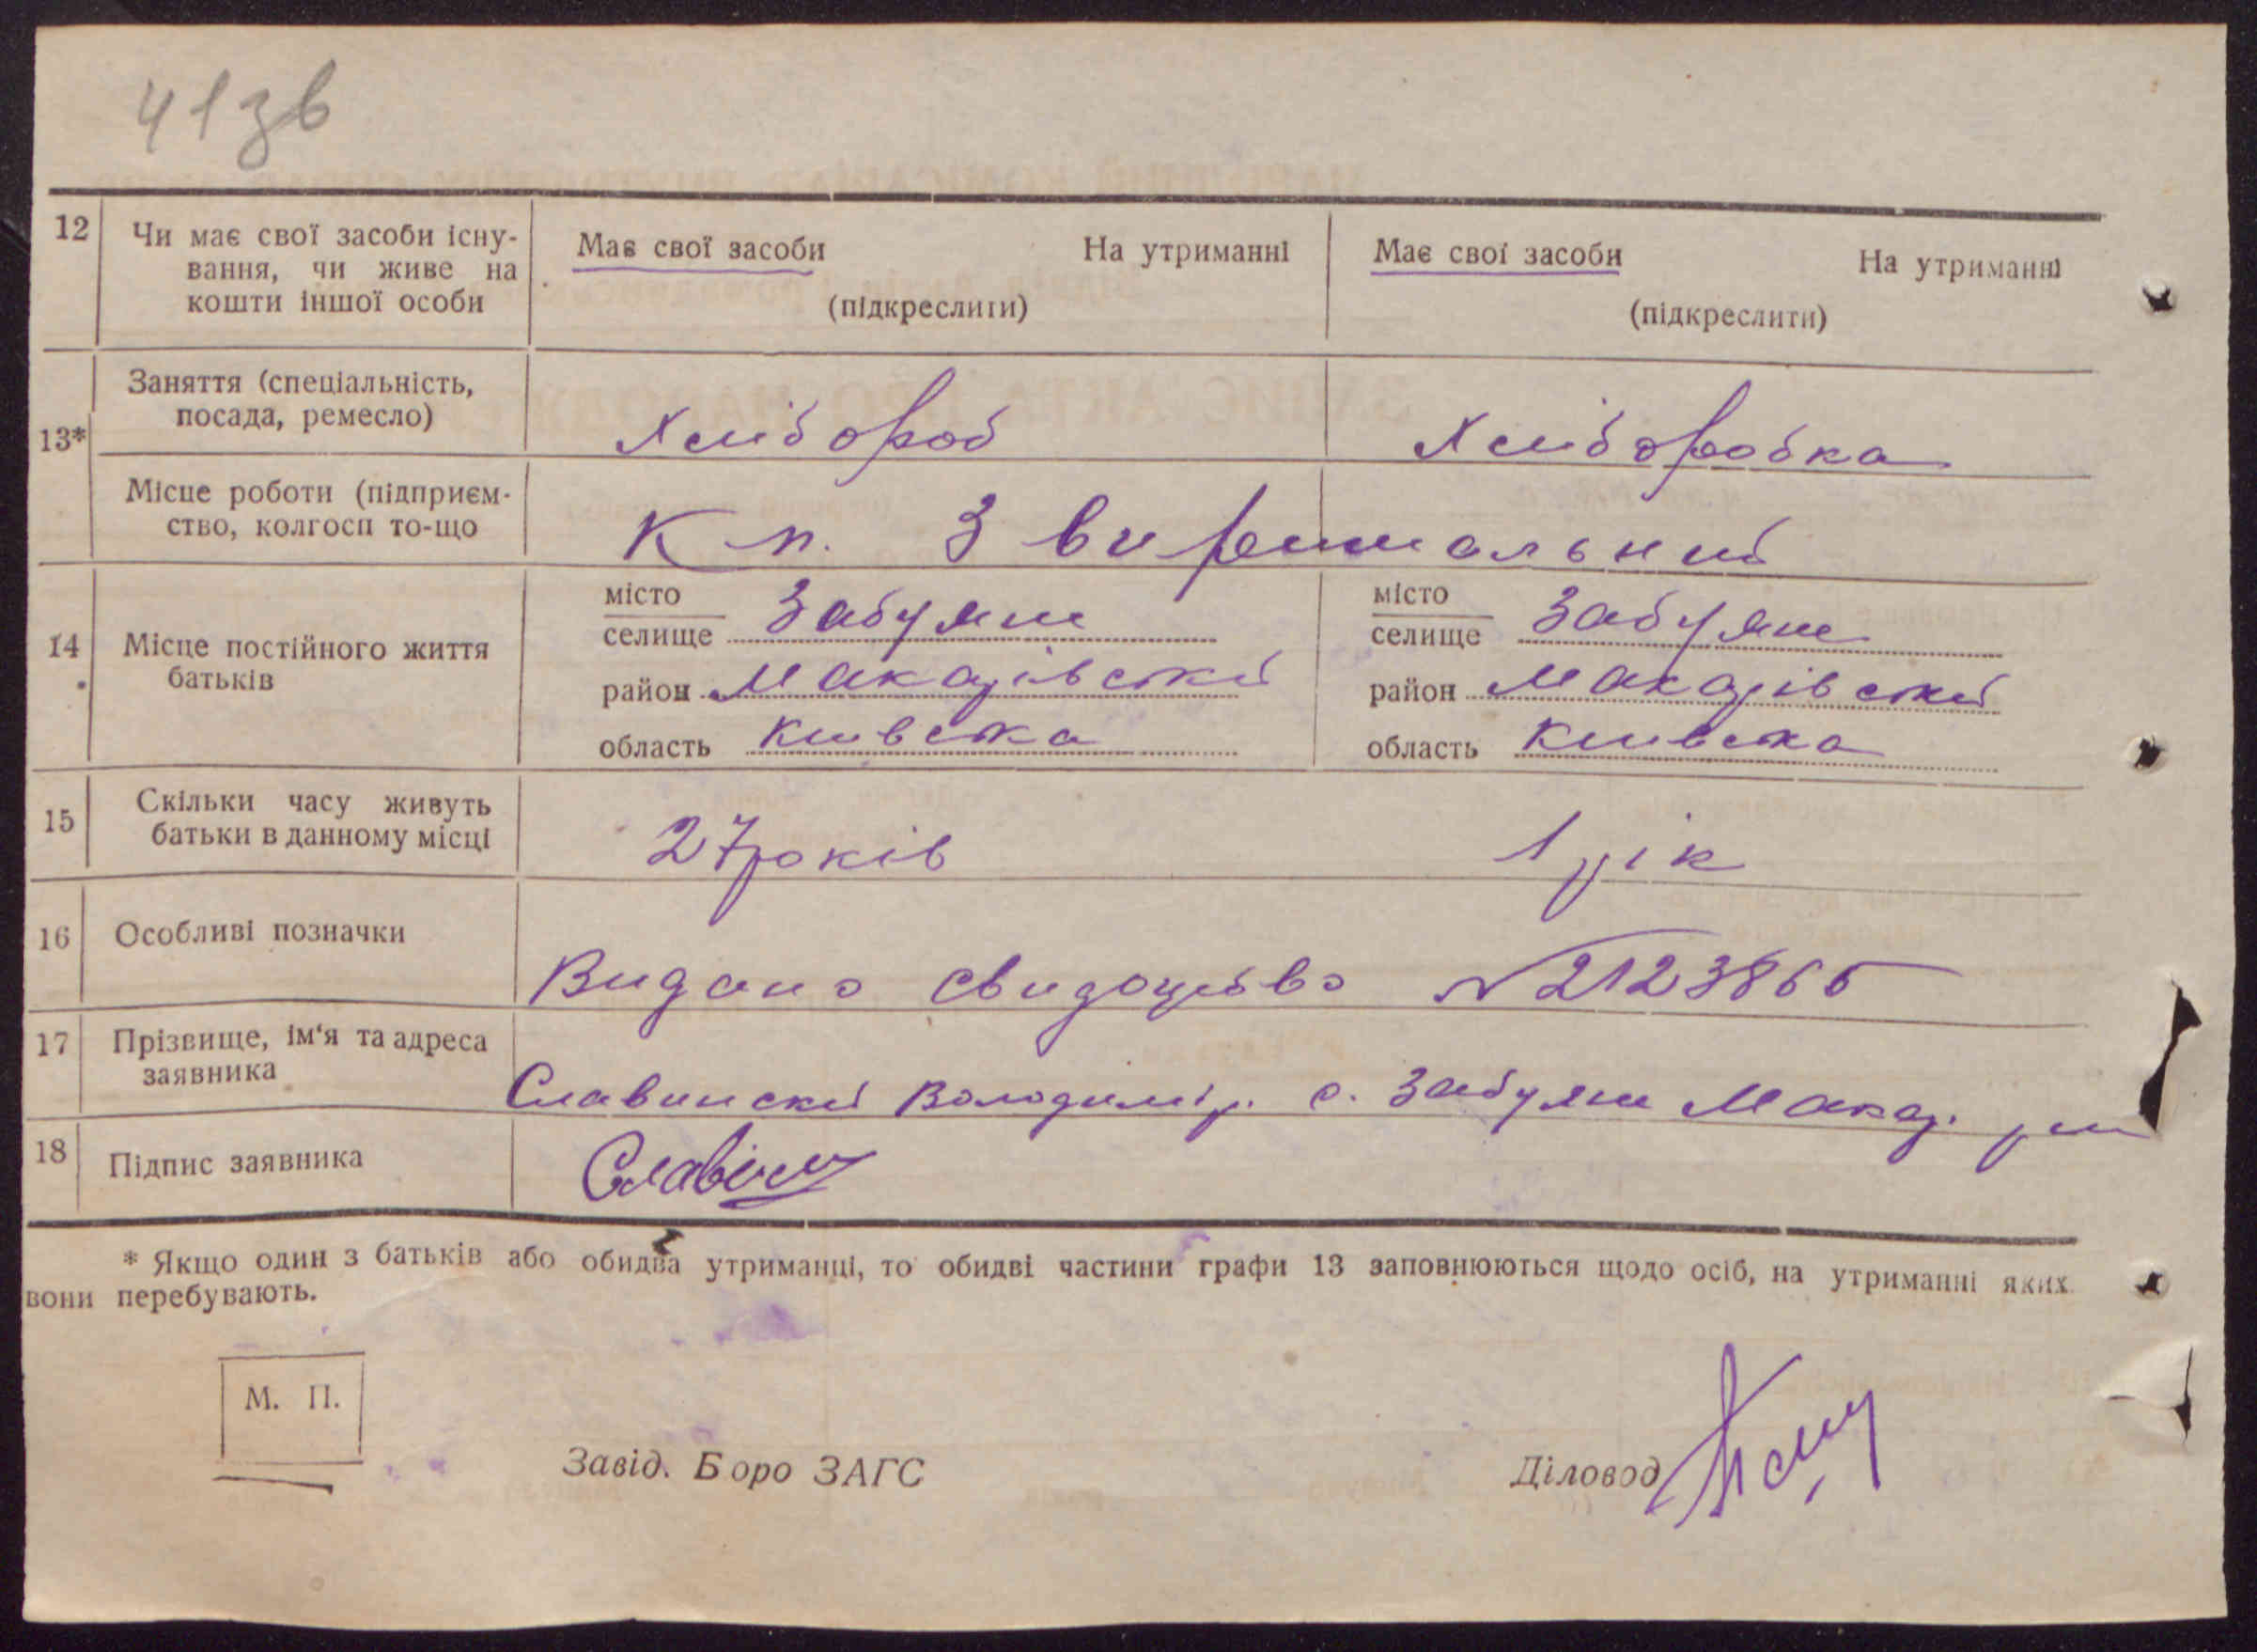 41зв
12 Чи має свої засоби існу-
вання, чи живе на
кошти іншої особи
Має свої засоби На утриманні
(підкреслити)
Має свої засоби На утриманні
(підкреслити)
13* Заняття (спеціальність,
посада, ремесло)
Хлібороб Хліборобка
Місце роботи (підприєм-
ство, колгосп то-що
К п. 3 вирішальний
14 Місце постійного життя
батьків
місто
селище Забуяне
район Макарівский
область Київска
місто
селище Забуяне
район Макарівский
область Київска
15 Скільки часу живуть
батьки в данному місці
27 років 1 рік
16 Особливі позначки
Видано свидоцтво №2123866
17 Прізвище, ім'я та адреса
заявника
Славинский Володимір. с. Забуяне Макар. рн
18 Підпис заявника
* Якщо один з батьків або обидва утриманці, то обидві частини графи 13 заповнюються щодо осіб, на утриманні яких
вони перебувають.
М. П.
Завід. Боро ЗАГС Діловод